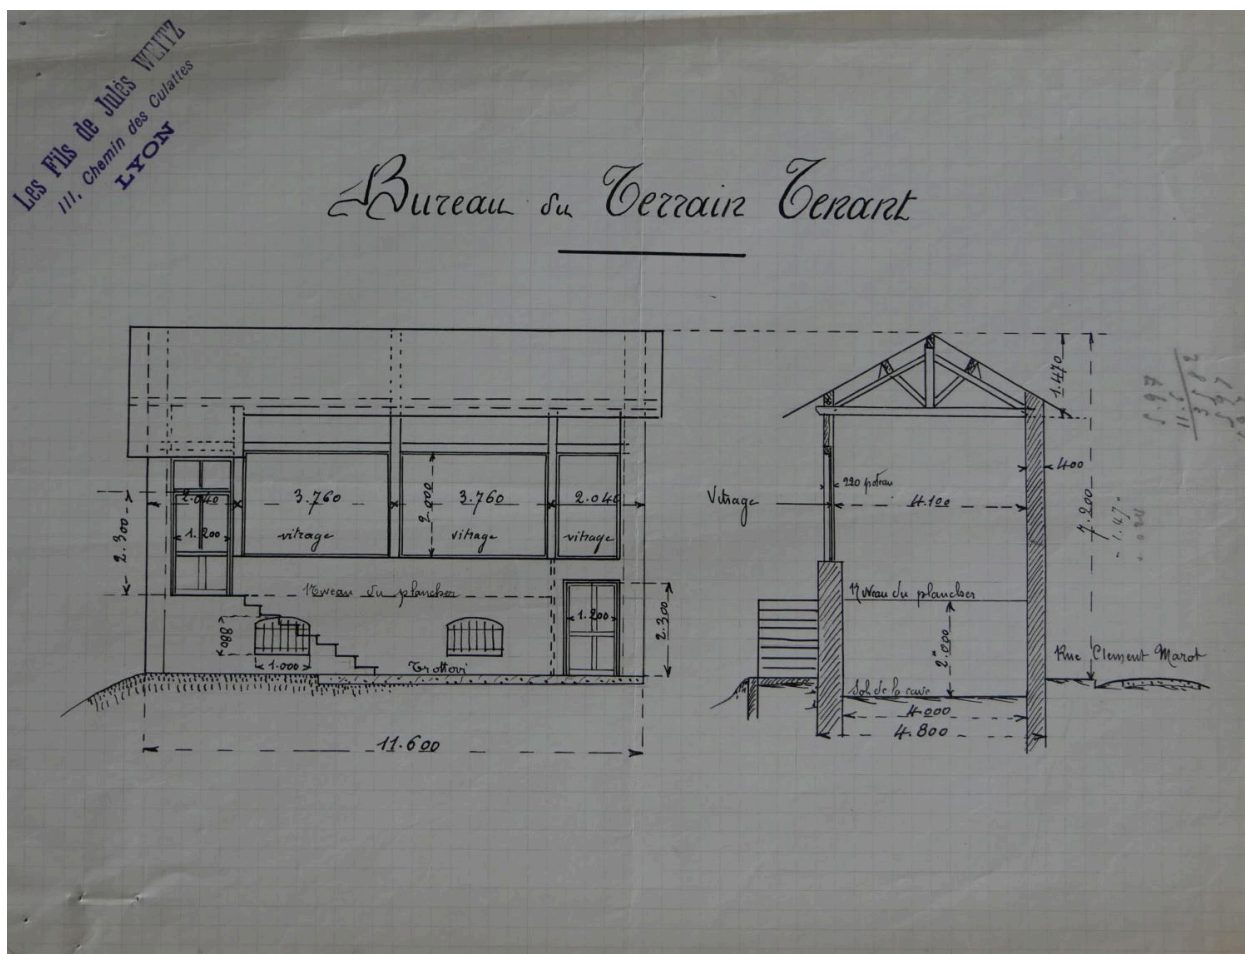 Les Fils de Jules WEITZ
111, Chemin des Culattes
LYON
Bureau du Terrain Tenant
2.040
3.760
3.760
2.040
2.000
1.200
vitrage
vitrage
vitrage
2.300
Niveau du plancher
880
1.000
Trottoir
1.200
2.300
11.600
1.470
400
220 poteau
Vitrage
4.100
7.200
Niveau du plancher
2m000
Rue Clement Marot
Sol de la cave
4.000
4.800
5.97
11.6
3582
597
- 1.47 -